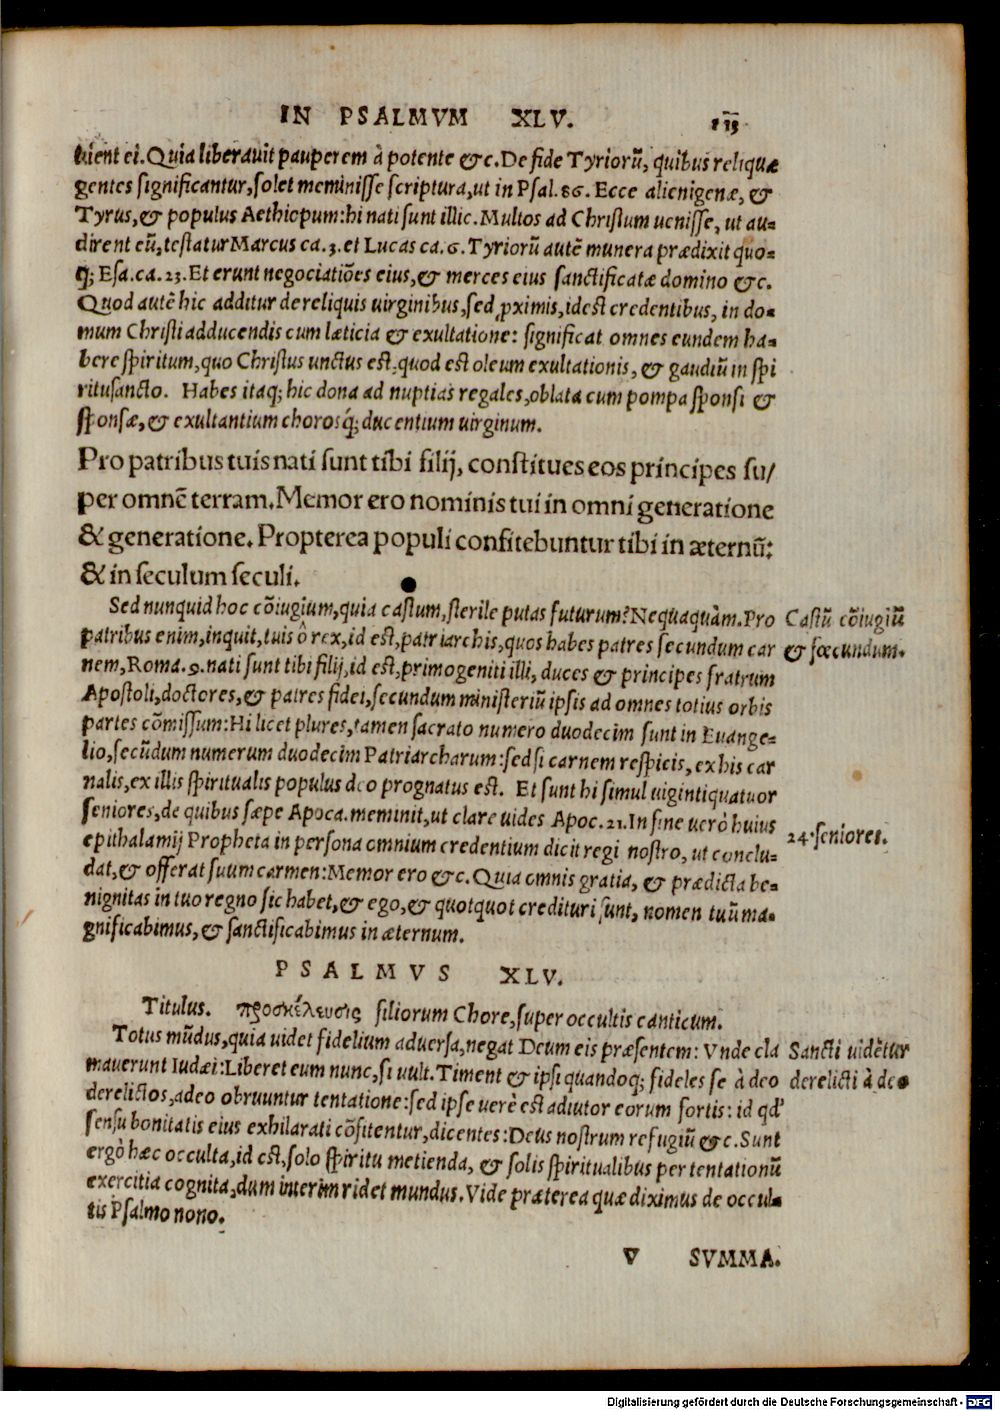 IN PSALMVM XLV.
uient ei. Quia liberauit pauperem à potente &c. De fide Tyriorũ, quibus reliquæ
gentes significantur, solet meminisse scriptura, ut in Psal. 86. Ecce alienigenæ, &
Tyrus, & populus Aethiopum: hi nati sunt illic. Multos ad Christum uenisse, ut au-
dirent eũ, testatur Marcus ca. 3. et Lucas ca. 6. Tyriorũ autẽ munera prædixit quo-
q; Esa. ca. 23. Et erunt negociatiões eius, & merces eius sanctificatæ domino &c.
Quod autẽ hic additur de reliquis uirginibus, sed ꝓximis, idest credentibus, in do-
mum Christi adducendis cum læticia & exultatione: significat omnes eundem ha-
bere spiritum, quo Christus unctus est: quod est oleum exultationis, & gaudiũ in spi
ritusancto. Habes itaq; hic dona ad nuptias regales, oblata cum pompa sponsi &
sponsæ, & exultantium chorosq́; ducentium uirginum.
Pro patribus tuis nati sunt tibi filij, constitues eos principes su/
per omnẽ terram. Memor ero nominis tui in omni generatione
& generatione. Propterea populi confitebuntur tibi in æternũ:
& in seculum seculi.
Sed nunquid hoc cõiugium, quia castum, sterile putas futurum? Nequaquàm. Pro
patribus enim, inquit, tuis ô rex, id est, patriarchis, quos habes patres secundum car
nem, Roma. 9. nati sunt tibi filij, id est, primogeniti illi, duces & principes fratrum
Apostoli, doctores, & patres fidei, secundum ministeriũ ipsis ad omnes totius orbis
partes cõmissum: Hi licet plures, tamen sacrato numero duodecim sunt in Euange-
lio, secũdum numerum duodecim Patriarcharum: sed si carnem respicis, ex his car
nalis, ex illis spiritualis populus deo prognatus est. Et sunt hi simul uigintiquatuor
seniores, de quibus sæpe Apoca. meminit, ut clare uides Apoc. 21. In fine uerò huius
epithalamij Propheta in persona omnium credentium dicit regi nostro, ut conclu-
dat, & offerat suum carmen: Memor ero &c. Quia omnis gratia, & prædicta be-
nignitas in tuo regno sic habet, & ego, & quotquot credituri sunt, nomen tuũ ma-
gnificabimus, & sanctificabimus in æternum.
Castũ cõiugiũ
& fœcundum.
24. seniores.
PSALMVS XLV.
Titulus. προσκέλευσις filiorum Chore, super occultis canticum.
Totus mũdus, quia uidet fidelium aduersa, negat Deum eis præsentem: Vnde cla
mauerunt Iudæi: Liberet eum nunc, si uult. Timent & ipsi quandoq; fideles se à deo
derelictos, adeo obruuntur tentatione: sed ipse uerè est adiutor eorum fortis: id qd'
sensu bonitatis eius exhilarati cõfitentur, dicentes: Deus nostrum refugiũ &c. Sunt
ergò hæc occulta, id est, solo spiritu metienda, & solis spiritualibus per tentationũ
exercitia cognita, dum interim ridet mundus. Vide præterea quæ diximus de occul-
tis Psalmo nono.
Sancti uidẽtur
derelicti à deo
V SVMMA.
Digitalisierung gefördert durch die Deutsche Forschungsgemeinschaft - DFG